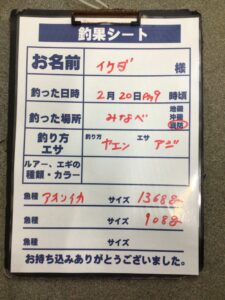 釣果シート
お名前 イケダ 様
釣った日時 2月20日PM9 時頃
釣った場所 みなべ 地磯 沖磯 堤防
釣り方 エサ 釣り方 ヤエン エサ アジ
ルアー、エギの種類・カラー
魚種 アオリイカ サイズ 1368g
魚種 サイズ 908g
魚種 サイズ
お持ち込みありがとうございました。